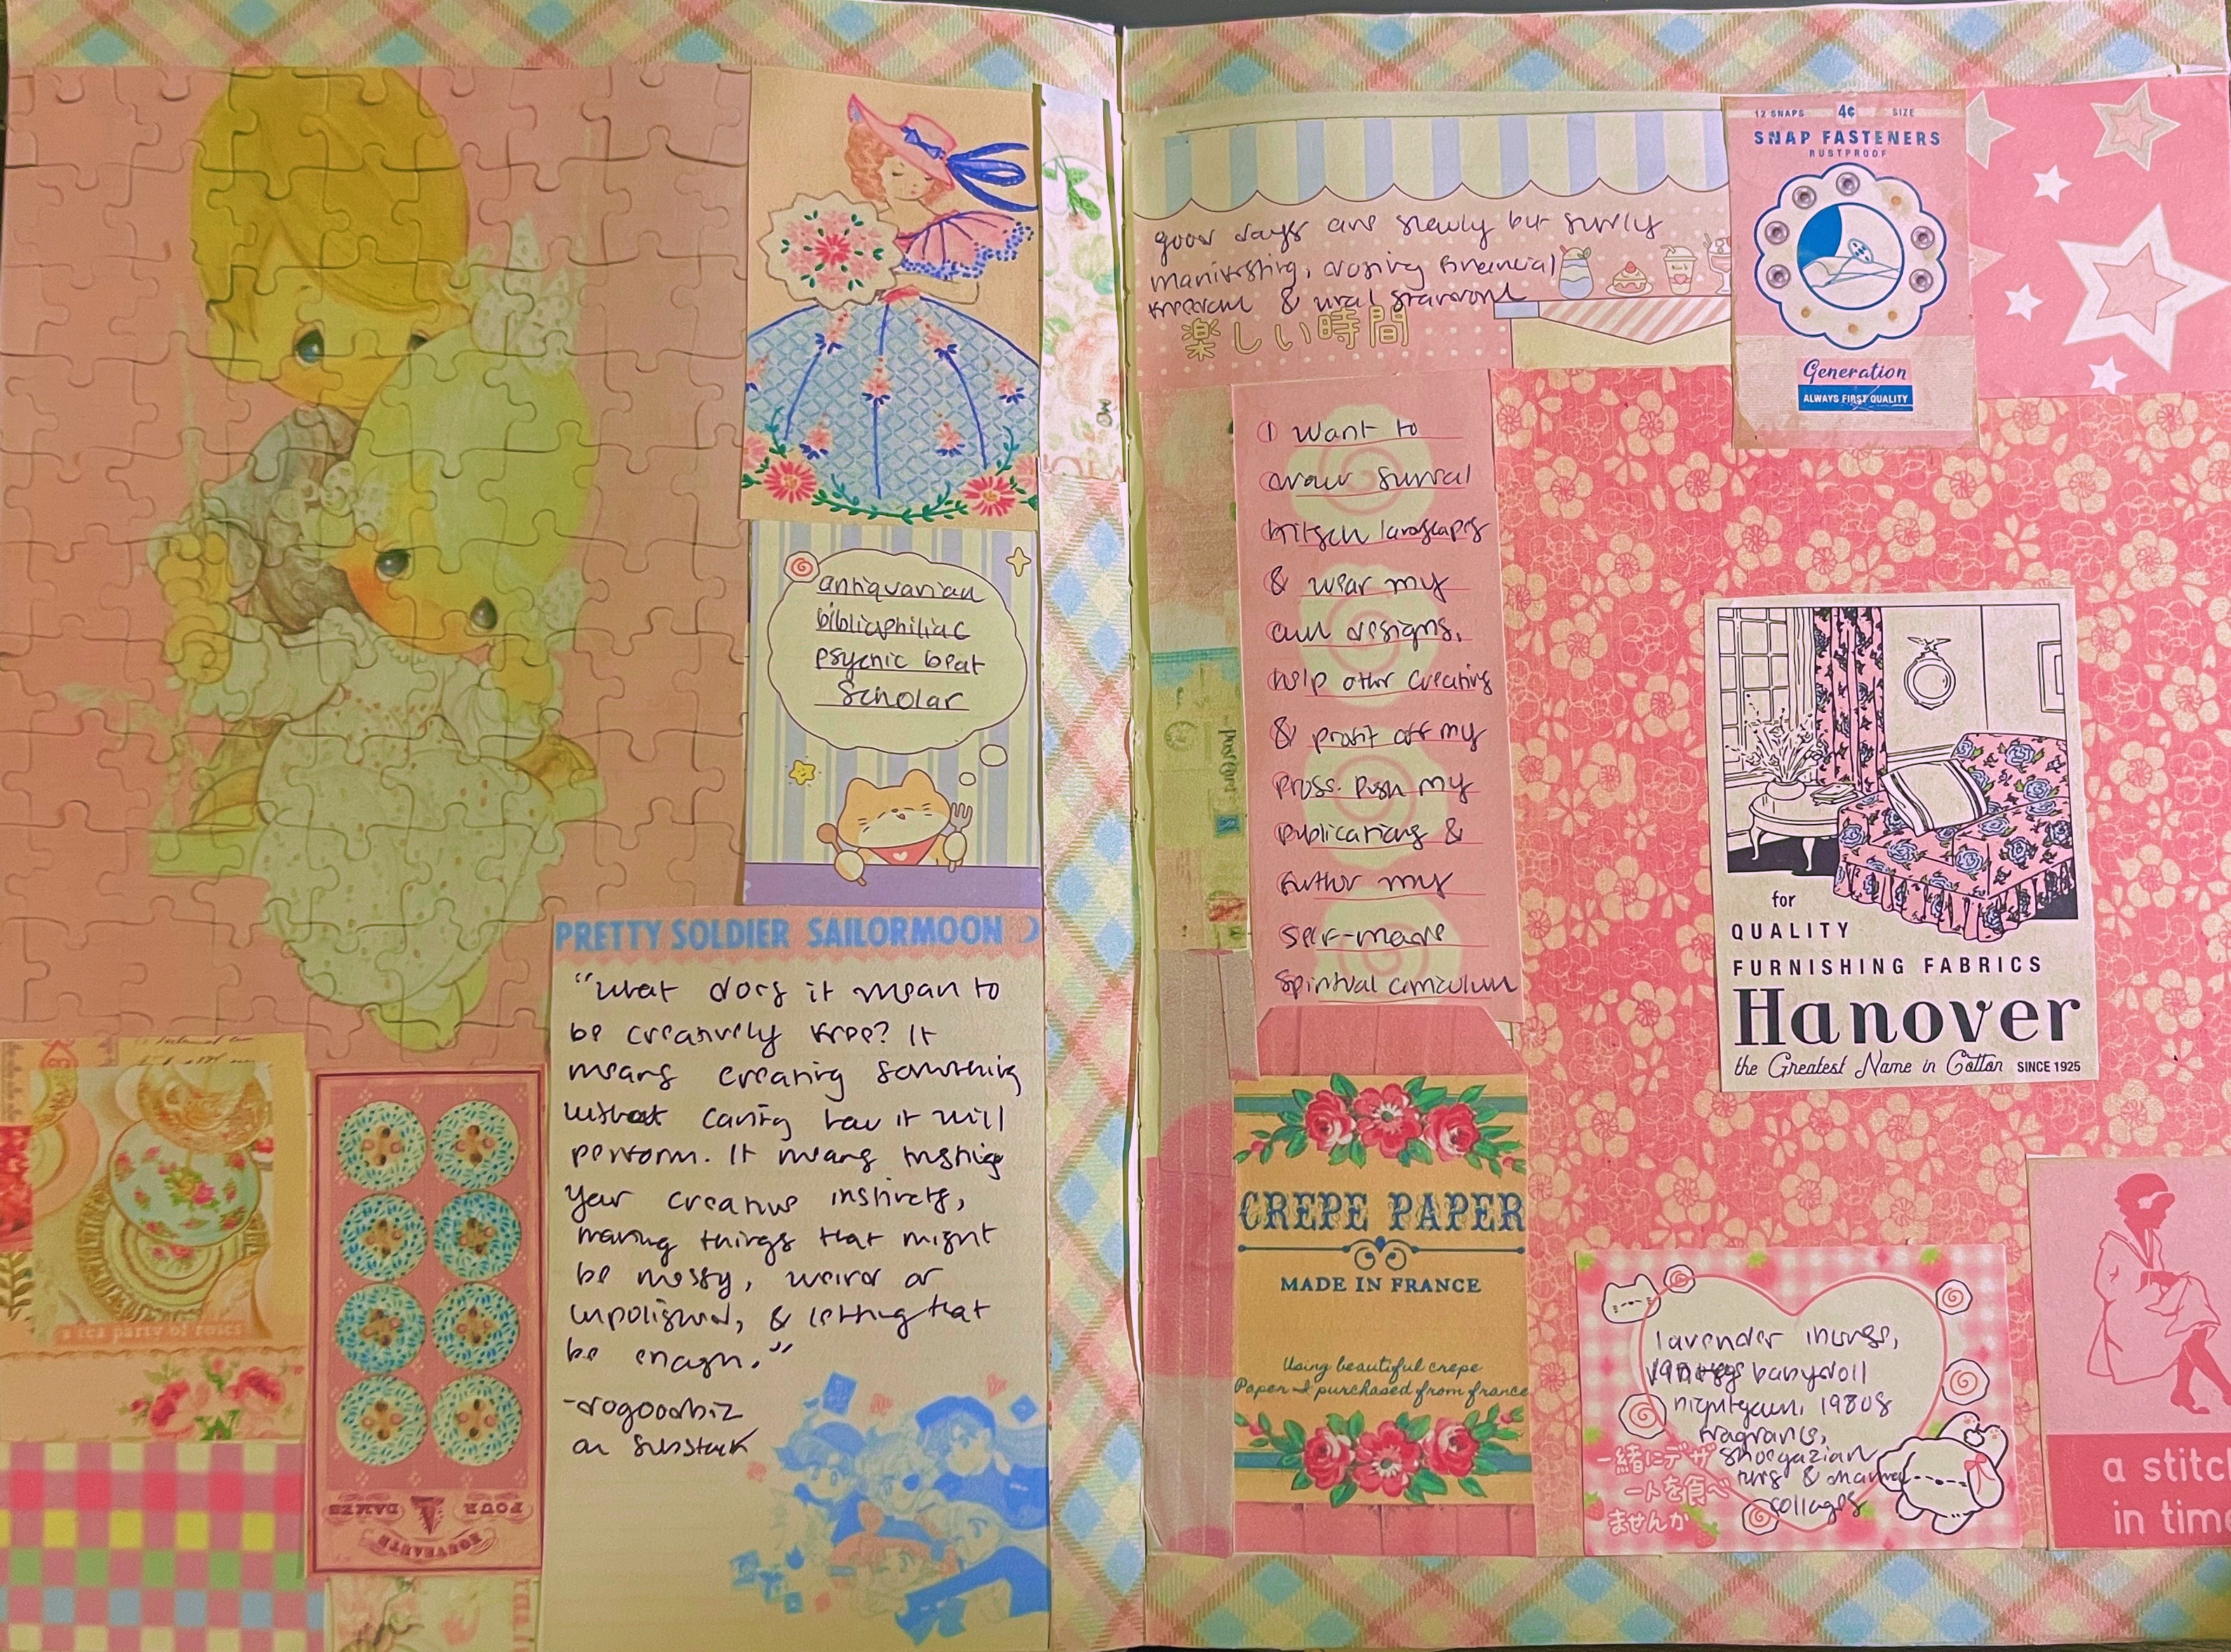 antiquarian
bibliophiliac
psychic beat
scholar
PRETTY SOLDIER SAILORMOON
"What does it mean to
be creatively free? It
means creating something
without caring how it will
perform. It means trusting
your creative instincts,
making things that might
be messy, weird or
unpolished, & letting that
be enough."
-dogoodbiz
on substack
a tea party of roses
POUR
DAMES
good days are slowly but surely
manifesting, craving financial
freedom &
楽しい時間
12 SNAPS 4¢ SIZE
SNAP FASTENERS
RUSTPROOF
Generation
ALWAYS FIRST QUALITY
I want to
draw surreal
kitsch landscapes
& wear my
own designs,
help other creatives
& profit off my
press. Push my
publications &
further my
self-made
spiritual curriculum
for
QUALITY
FURNISHING FABRICS
Hanover
the Greatest Name in Cotton SINCE 1925
CREPE PAPER
MADE IN FRANCE
Using beautiful crepe
Paper I purchased from france
lavender
babydoll
nightgown, 1980s
fragrances,
shoegazian
& manual
collages
一緒にデザ
ートを食べ
ませんか
a stitc
in time